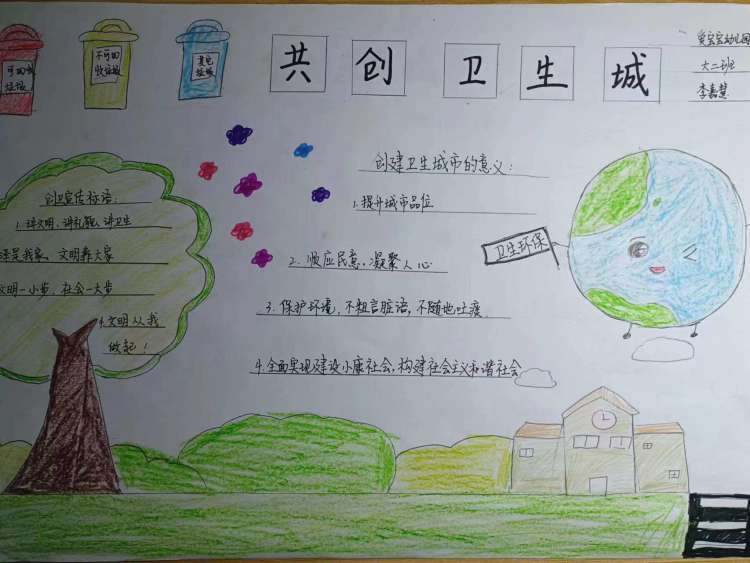 共创卫生城
爱宝宝幼儿园
大二班
李嘉慧
不可回
收垃圾
垃圾
垃圾
创建卫生城市的意义:
1.提升城市品位
2.顺应民意,凝聚人心
3.保护环境,不粗言脏语,不随地吐痰
4.全面实现建设小康社会,构建社会主义和谐社会
卫生环保
创卫宣传标语:
1.讲文明,讲礼貌,讲卫生
是我家,文明靠大家
文明一小步,社会一大步
4.文明从我
做起!